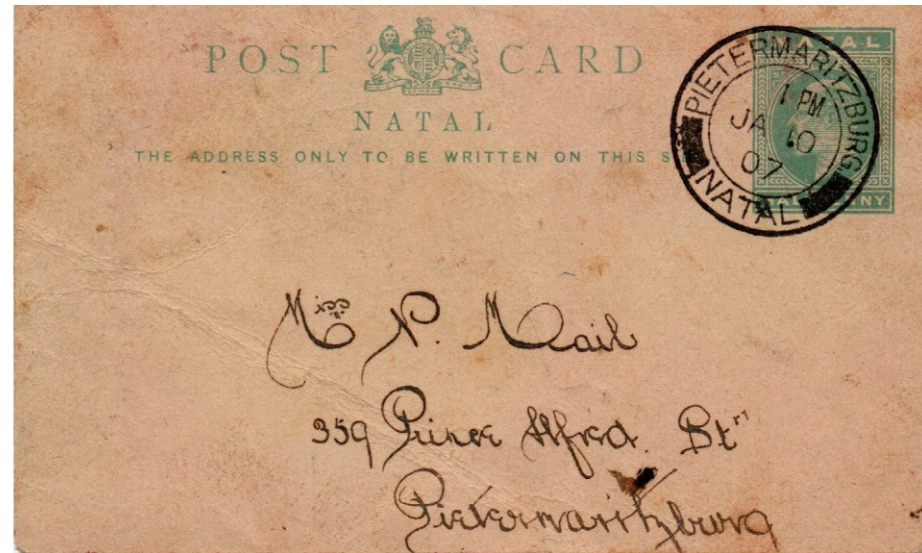 POST CARD
NATAL
THE ADDRESS ONLY TO BE WRITTEN ON THIS S
NATAL
HALFPENNY
PIETERMARITZBURG
1 PM
JA 10
07
NATAL
Miss N. Mail
359 Prince Alfred. St"
Pietermaritzburg